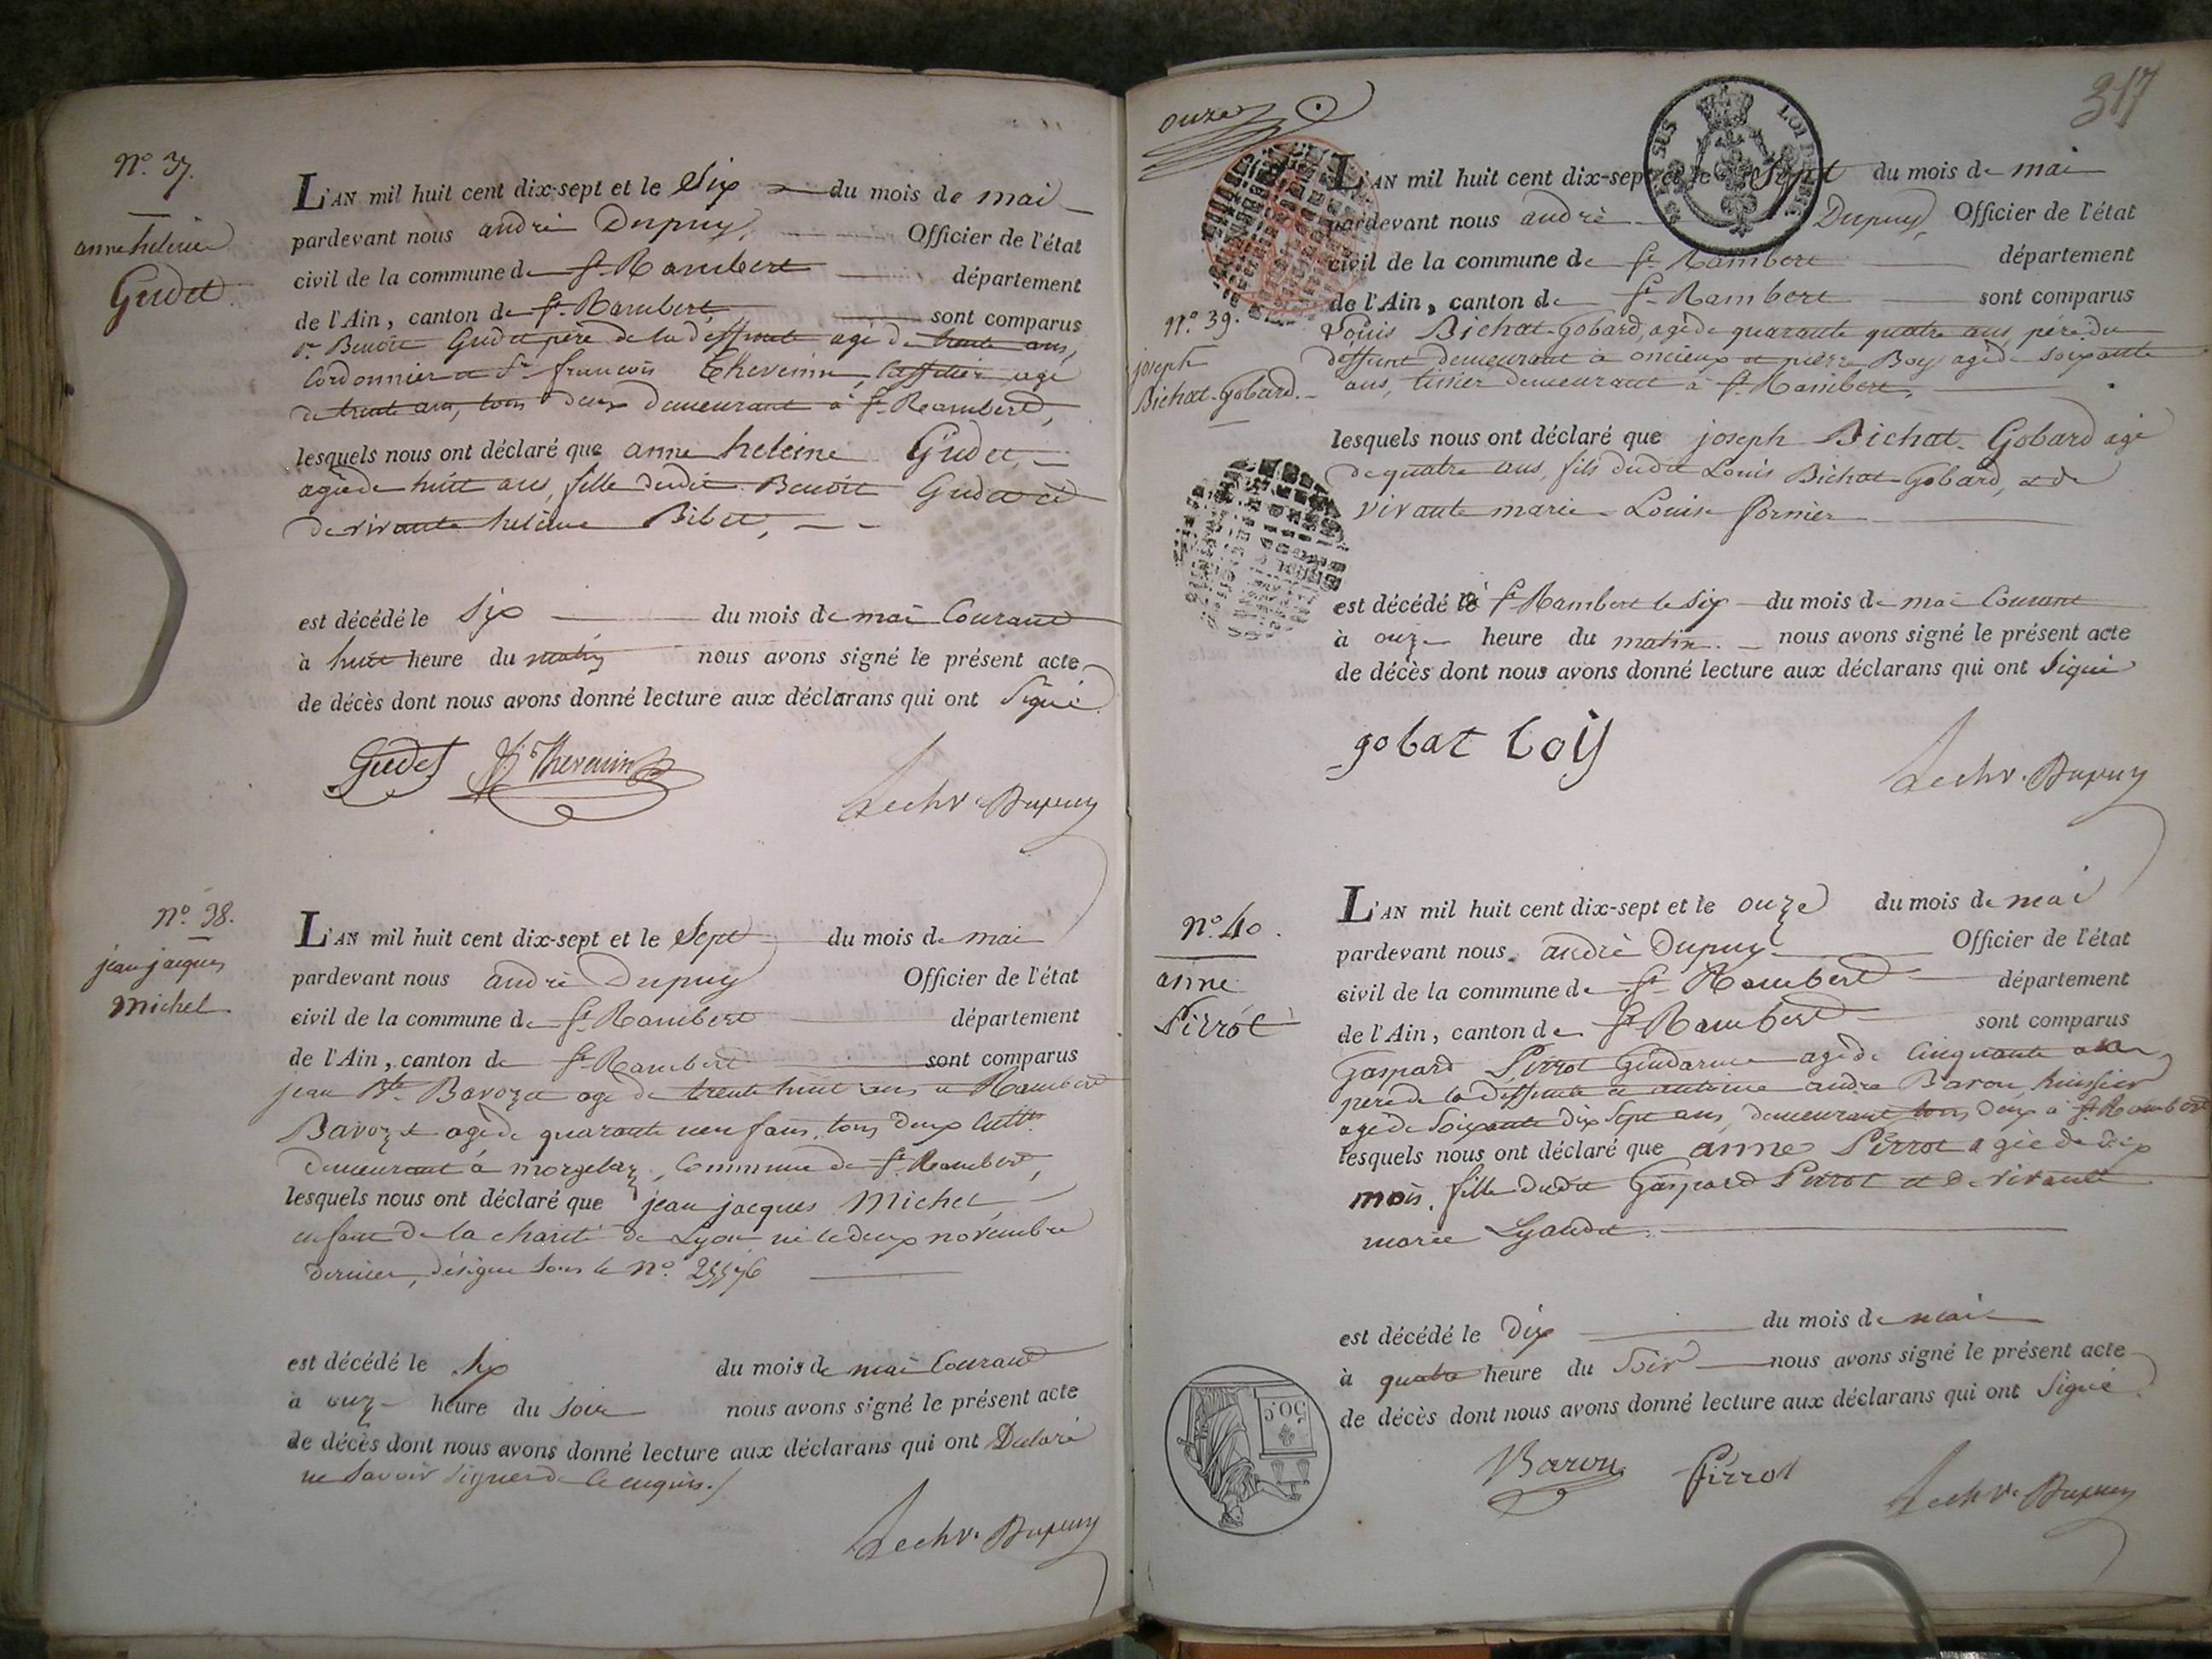 N.º 37.
anne heleine
Gudet.
L'AN mil huit cent dix-sept et le Six du mois de mai
pardevant nous andré Dupuy, Officier de l'état
civil de la commune de St. Rambert département
de l'Ain, canton de St. Rambert, sont comparus
Sr. Benoit Gudet père de la deffunte agé de trente ans,
Cordonnier et Sr. francois Thevenin, agé
de trente ans, tous deux demeurant à St. Rambert,
lesquels nous ont déclaré que anne heleine Gudet
agée de huit ans, fille dudit Benoit Gudet et
de vivante heleine Bibet,
est décédé le Six du mois de mai Courant
à huit heure du matin nous avons signé le présent acte
de décès dont nous avons donné lecture aux déclarans qui ont Signé
Gudet Thevenin
Lechr. Dupuy
N.º 38.
jean jacques
Michel.
L'AN mil huit cent dix-sept et le Sept du mois de mai
pardevant nous andré Dupuy Officier de l'état
civil de la commune de St. Rambert département
de l'Ain, canton de St. Rambert sont comparus
jean Bte. Bavozet agé de trente huit ans et Rambert
Bavozet agé de quarante neuf ans, tous deux Cultrs.
demeurant à morgelaz, Commune de St. Rambert,
lesquels nous ont déclaré que jean jacques Michel
enfant de la charité de Lyon né le deux novembre
dernier, désigné sous le N.º
est décédé le Six du mois de mai Courant
à onze heure du Soir nous avons signé le présent acte
de décès dont nous avons donné lecture aux déclarans qui ont Déclaré
ne Savoir Signer de ce enquis./
Lechr. Dupuy
317
onze
N.º 39.
joseph
Bichat-Gobard.
L'AN mil huit cent dix-sept et le Sept du mois de mai
pardevant nous andré Dupuy, Officier de l'état
civil de la commune de St. Rambert département
de l'Ain, canton de St. Rambert sont comparus
Louis Bichat-Gobard, agé de quarante quatre ans, père du
deffunt demeurant à oncieux et pierre Boy agé de soixante
ans, tissier demeurant à St. Rambert,
lesquels nous ont déclaré que joseph Bichat-Gobard agé
de quatre ans, fils dudit Louis Bichat-Gobard, et de
vivante marie-Louise fornier
est décédé à St. Rambert le Six du mois de mai Courant
à onze heure du matin nous avons signé le présent acte
de décès dont nous avons donné lecture aux déclarans qui ont Signé
gobat
Lechr. Dupuy
N.º 40.
anne
Pirrot
L'AN mil huit cent dix-sept et le onze du mois de mai
pardevant nous andré Dupuy Officier de l'état
civil de la commune de St. Rambert département
de l'Ain, canton de St. Rambert sont comparus
Gaspard Pirrot Gendarme agé de Cinquante ans
père de la deffunte et antoine andré Baron, huissier
agé de Soixante dix Sept ans, demeurant tous deux à St. Rambert
lesquels nous ont déclaré que anne Pirrot agée de dix
mois, fille dudit Gaspard Pirrot et de vivante
marie Lyaudet.
est décédé le dix du mois de mai
à quatre heure du Soir nous avons signé le présent acte
de décès dont nous avons donné lecture aux déclarans qui ont Signé.
50 c.
Baron Pirrot
Lechr. Dupuy